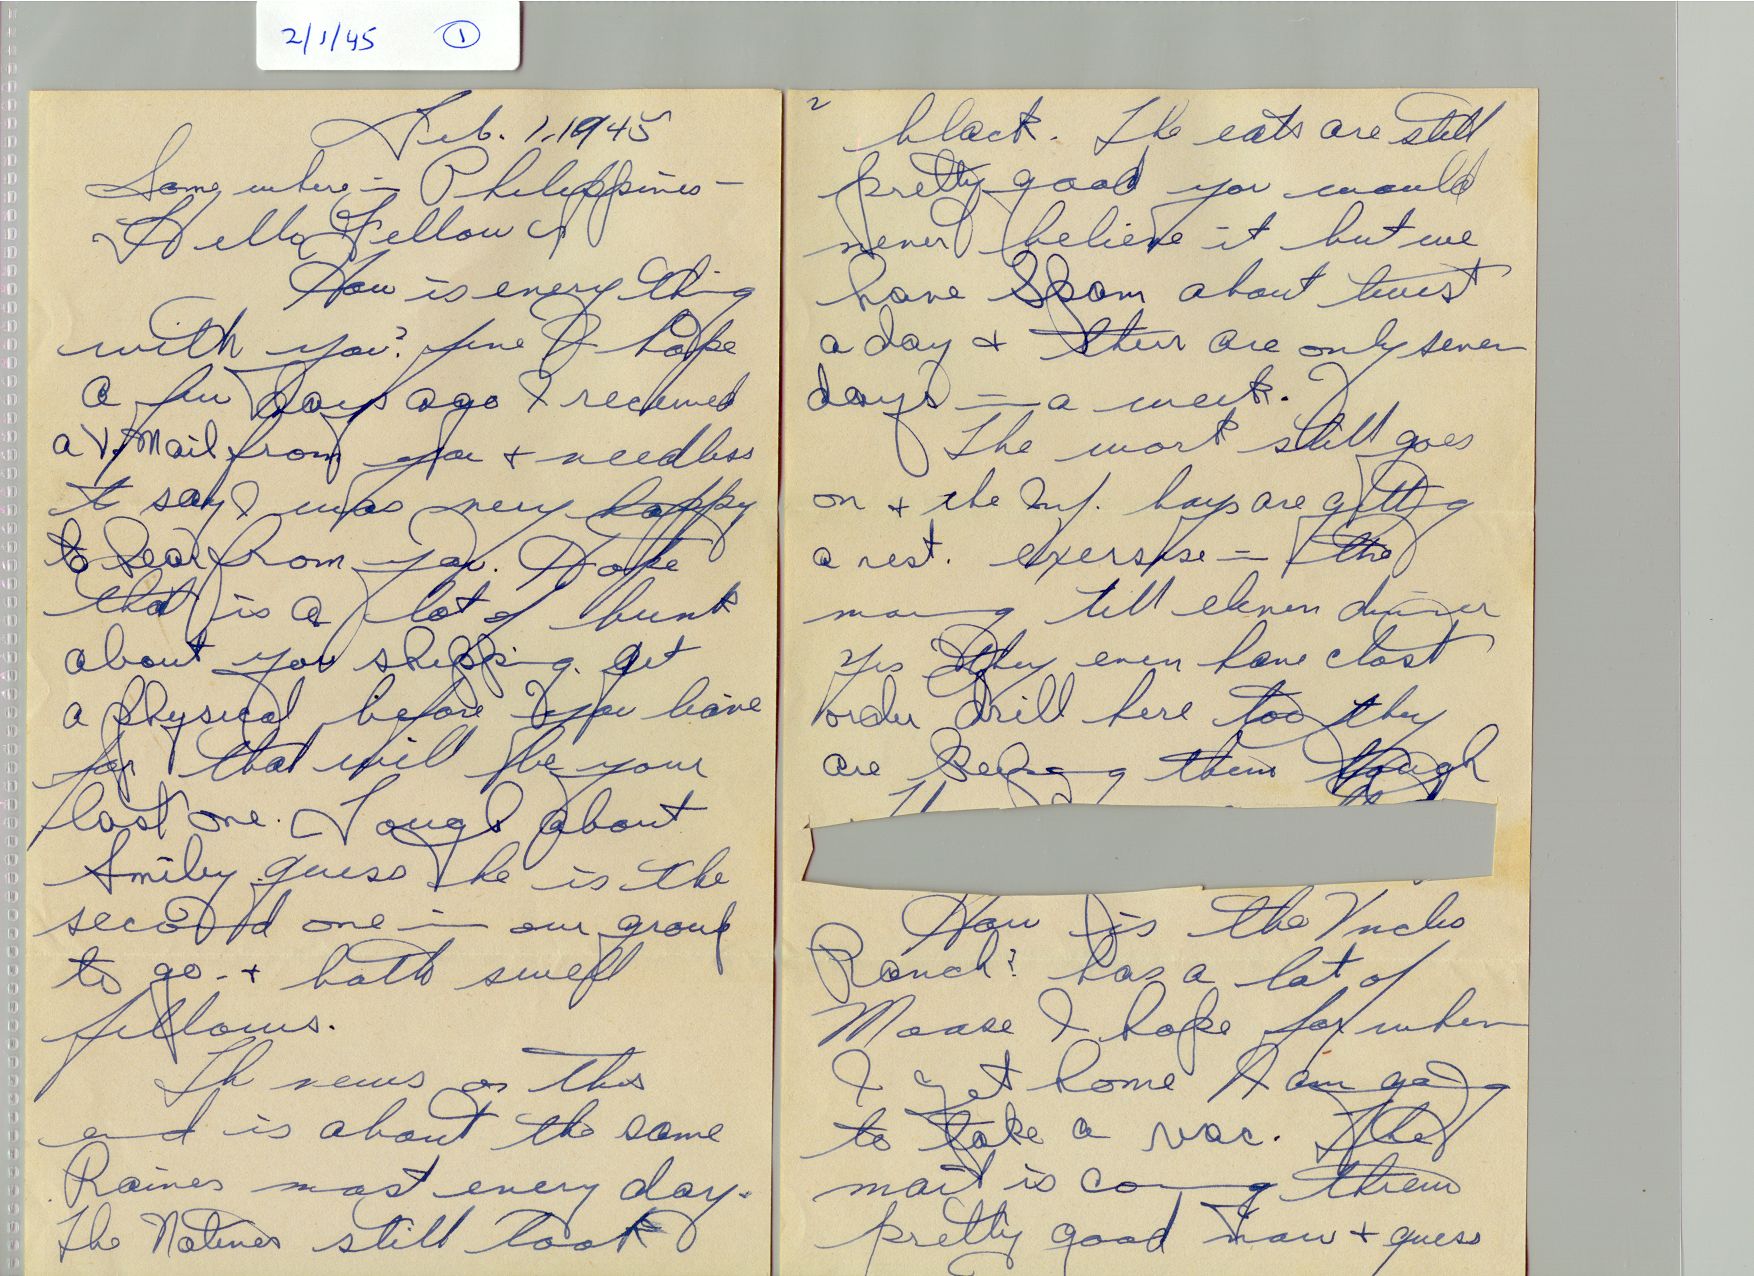 2/1/45 1
Feb. 1, 1945
Somewhere in Philippines -
Hello Fellow
How is every thing
with you? fine I hope
a few days ago I received
a V. Mail from you + needless
to say I was very happy
to hear from you. Hope
that is a lot of bunk
about you shipping. get
a physical before you leave
for that will be your
last one. Tough about
Smiley guess he is the
second one in our group
to go - + both swell
fellows.
Th news on this
end is about the same
Raines most every day.
The Natives still look
2
black. The eats are still
pretty good you would
never believe it but we
have Spam about twist
a day + their are only seven
days in a week.
The work still goes
on + the Inf. boys are getting
a rest. exersise in the
morning till eleven dinner
yes they even have clost
order drill here too they
are keeping them tough
How is the Uncles
Ranch? has a lot of
Moose I hope for when
I get home I am going
to take a vac. The
mail is coming threw
pretty good now + guess